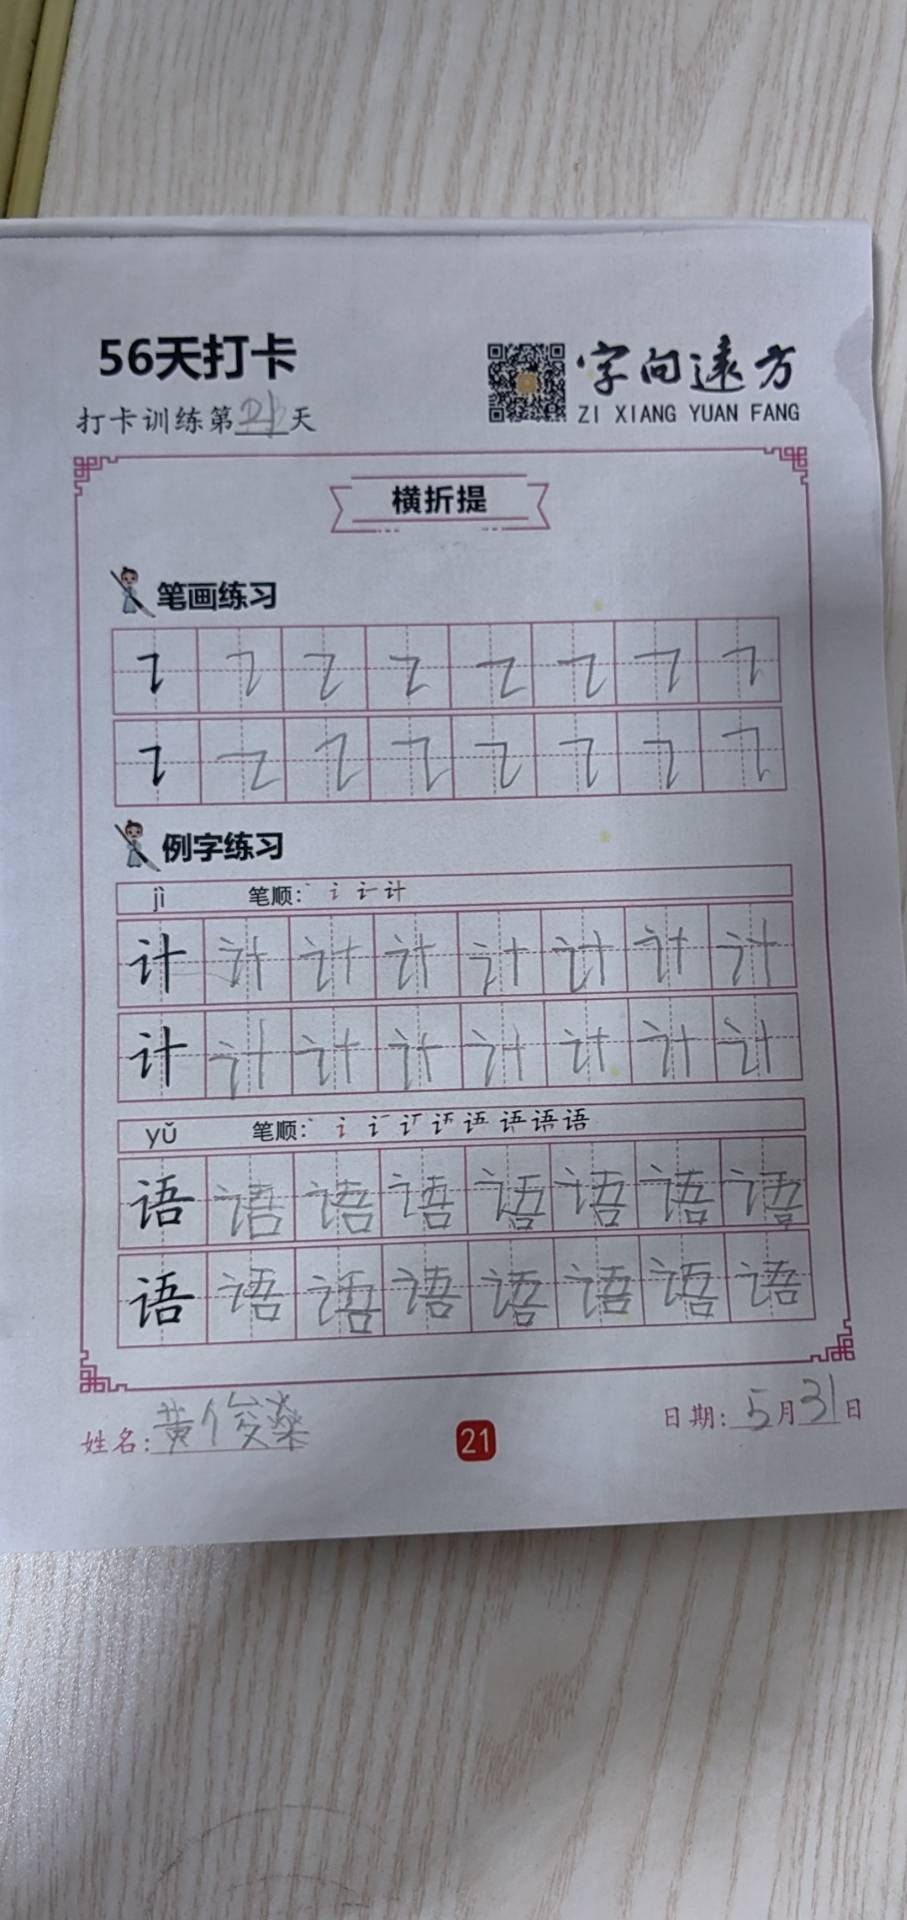 56天打卡
字向远方
ZI XIANG YUAN FANG
打卡训练第21天
横折提
笔画练习
例字练习
jì 笔顺：
计 计 计 计 计 计 计 计
计 计 计 计 计 计 计 计
yǔ 笔顺：
语 语 语 语 语 语 语 语
语 语 语 语 语 语 语 语
姓名：黄俊燊
21
日期：5月31日